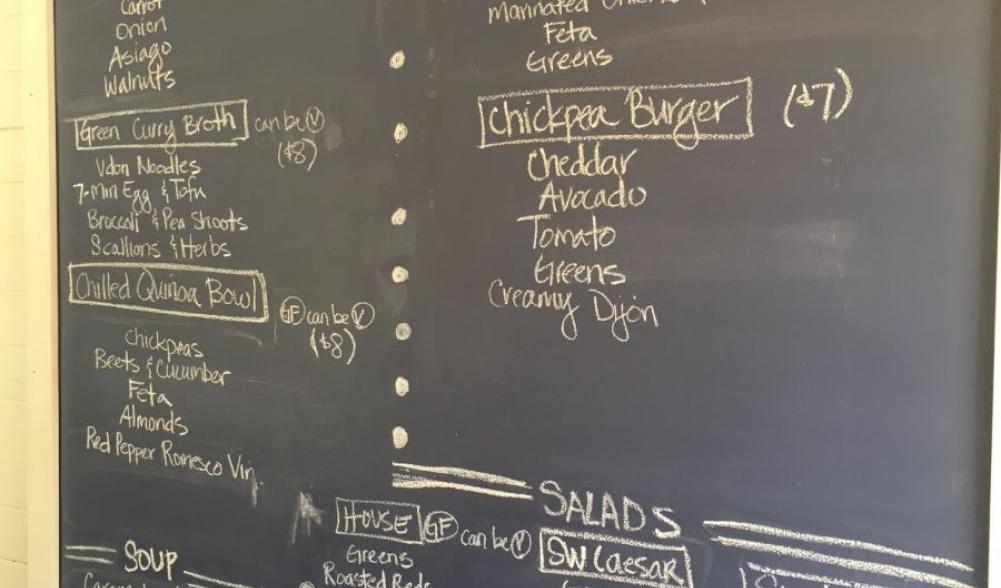 Carrot
Onion
Asiago
Walnuts
Green Curry Broth can be V
($8)
Udon Noodles
7-Min Egg & Tofu
Broccoli & Pea Shoots
Scallions & Herbs
Chilled Quinoa Bowl
GF can be V
($8)
Chickpeas
Beets & Cucumber
Feta
Almonds
Red Pepper Romesco Vin.
SOUP
Marinated
Feta
Greens
Chickpea Burger ($7)
Cheddar
Avocado
Tomato
Greens
Creamy Dijon
SALADS
HOUSE GF can be V
Greens
Roasted
SW Caesar